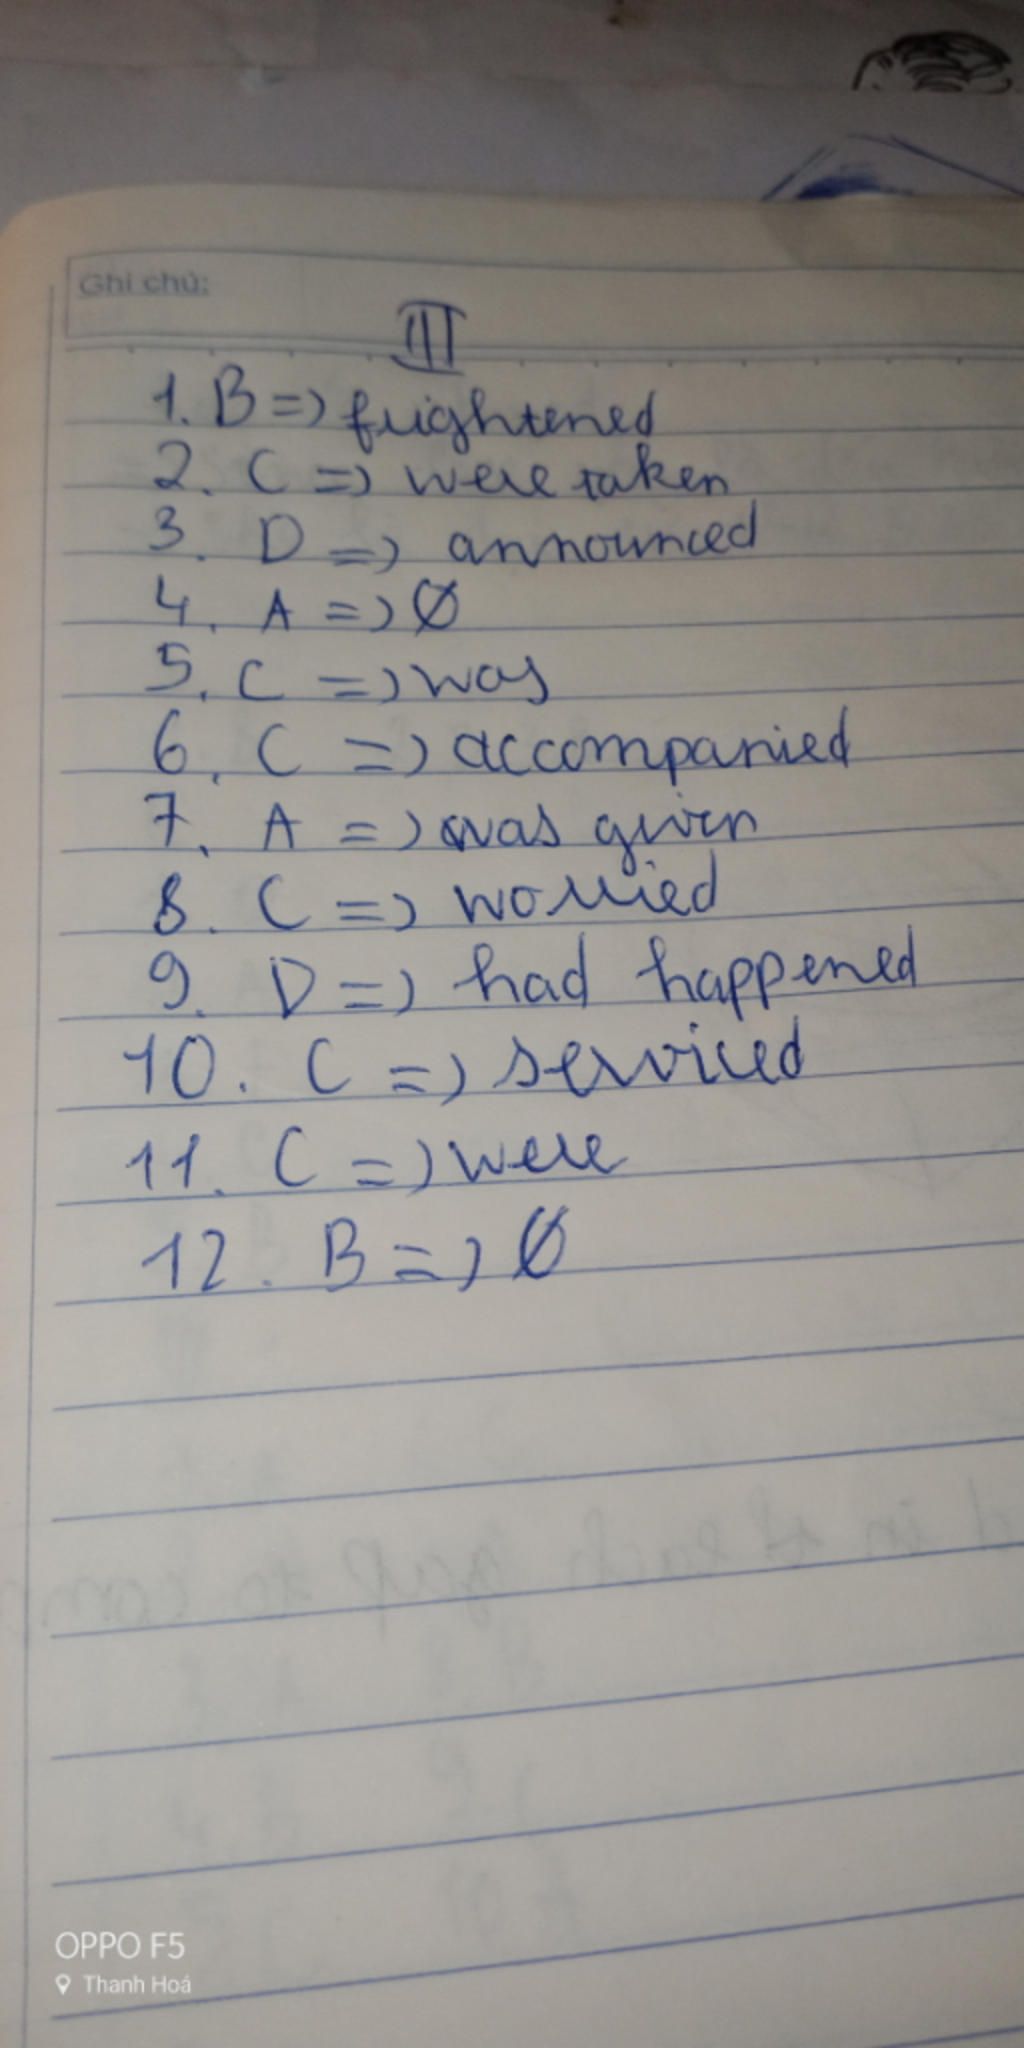 Ghi chú:
III
1. B => frightened
2. C => were taken
3. D => announced
4. A => Ø
5. C => was
6. C => accompanied
7. A => was given
8. C => worried
9. D => had happened
10. C => serviced
11. C => were
12. B => Ø
d in each gap to com
OPPO F5
Thanh Hoá